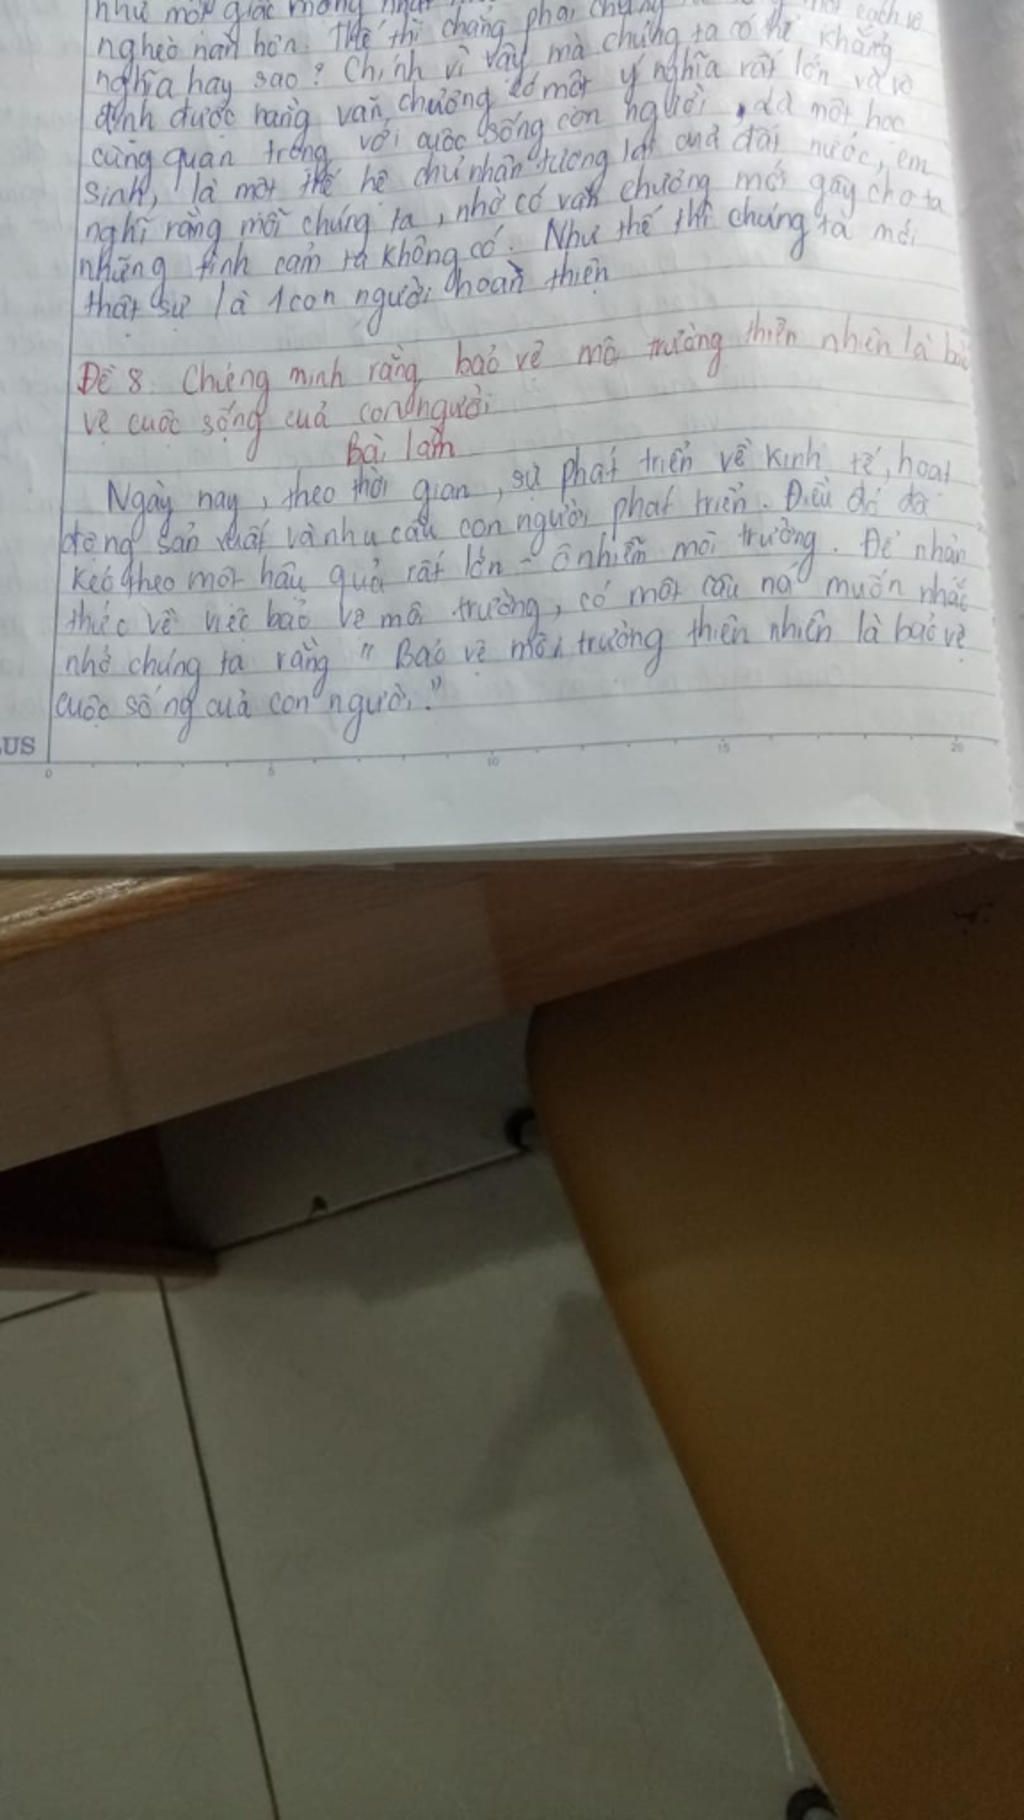 như một giấc mộng
nghèo nàn hơn. Thế thì chẳng phải cách vô
nghĩa hay sao? Chính vì vậy mà chúng ta có thể khẳng
định được rằng văn chương có một ý nghĩa rất lớn và vô
cùng quan trọng với cuộc sống con người, là một học
sinh, là một thế hệ chủ nhân tương lai cuả đất nước, em
nghĩ rằng mỗi chúng ta, nhờ có văn chương mới gây cho ta
những tình cảm ta không có. Như thế thì chúng ta mới
thật sự là 1 con người hoàn thiện
Đề 8: Chứng minh rằng bảo vệ môi trường thiên nhiên là bảo
vệ cuộc sống cuả con người
Bài làm
Ngày nay, theo thời gian, sự phát triển về kinh tế, hoạt
động sản xuất và nhu cầu con người phát triển. Điều đó đã
kéo theo một hậu quả rất lớn - ô nhiễm môi trường. Để nhận
thức về việc bảo vệ môi trường, có một câu nói muốn nhắc
nhở chúng ta rằng "Bảo vệ môi trường thiên nhiên là bảo vệ
cuộc sống cuả con người."
US
0 5 10 15 20